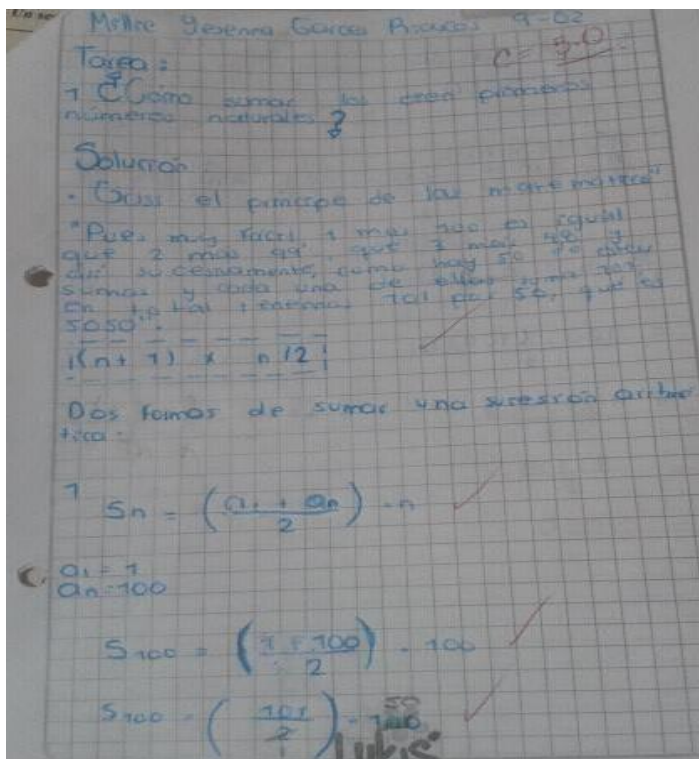 Yesenna Garces 9-02
C = 3.0
Tarea:
1 ¿Como sumar los cien primeros
números naturales?
Solucion
. Guss el principe de las matematicas"
"Pues muy facil 1 mas 100 es igual
que 2 mas 99, que 3 mas 98 y
asi sucesivamente, como hay 50 de
sumas y cada una de ellas suma 101,
en total 101 por 50, que es
5050".
(n + 1) x n/2
Dos formas de sumar una sucesión aritme
tica:
1 Sn = (a1 + an / 2) . n
a1 = 1
an = 100
S100 = (1 + 100 / 2) . 100
S100 = (101 / 2) . 50
Lukis